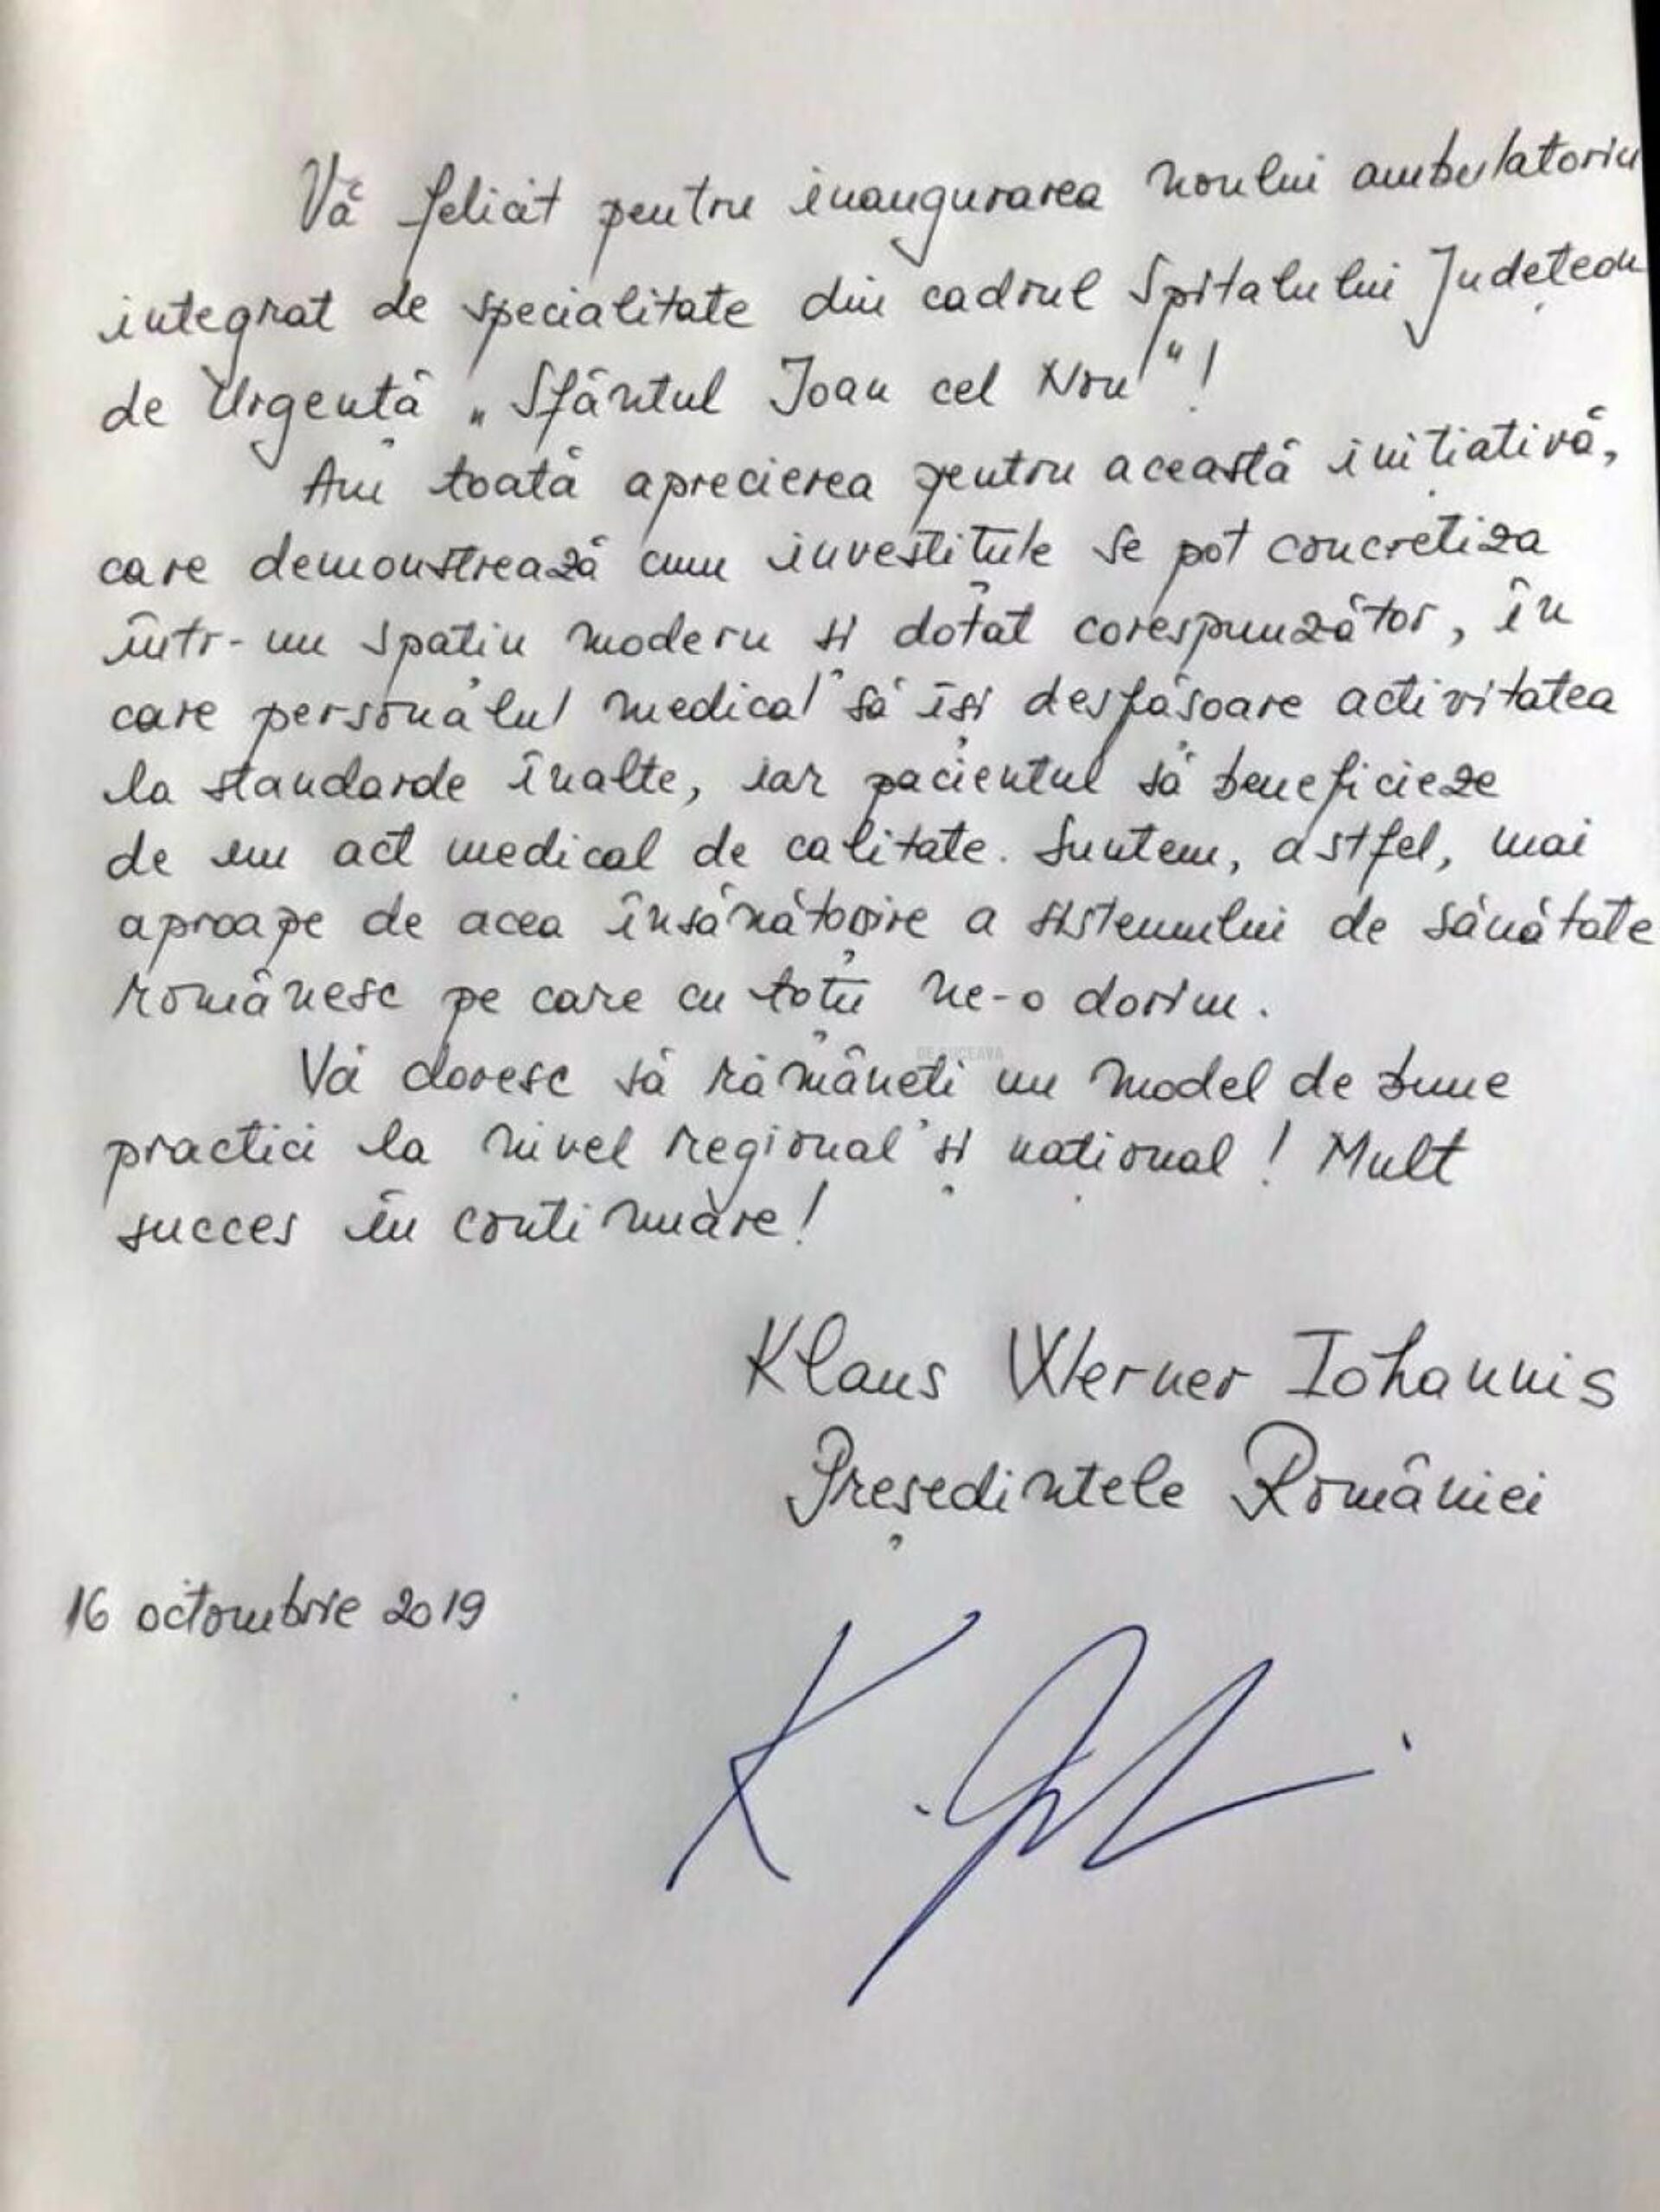 Vă felicit pentru inaugurarea noului ambulatoriu
integrat de specialitate din cadrul Spitalului Județean
de Urgență „Sfântul Ioan cel Nou”!
Am toată aprecierea pentru această inițiativă,
care demonstrează cum investițiile se pot concretiza
într-un spațiu modern și dotat corespunzător, în
care personalul medical să își desfășoare activitatea
la standarde înalte, iar pacientul să beneficieze
de un act medical de calitate. Suntem, astfel, mai
aproape de acea însănătoșire a sistemului de sănătate
românesc pe care cu toții ne-o dorim.
DE SUCEAVA
Vă doresc să rămâneți un model de bune
practici la nivel regional și național! Mult
succes în continuare!
Klaus Werner Iohannis
Președintele României
16 octombrie 2019